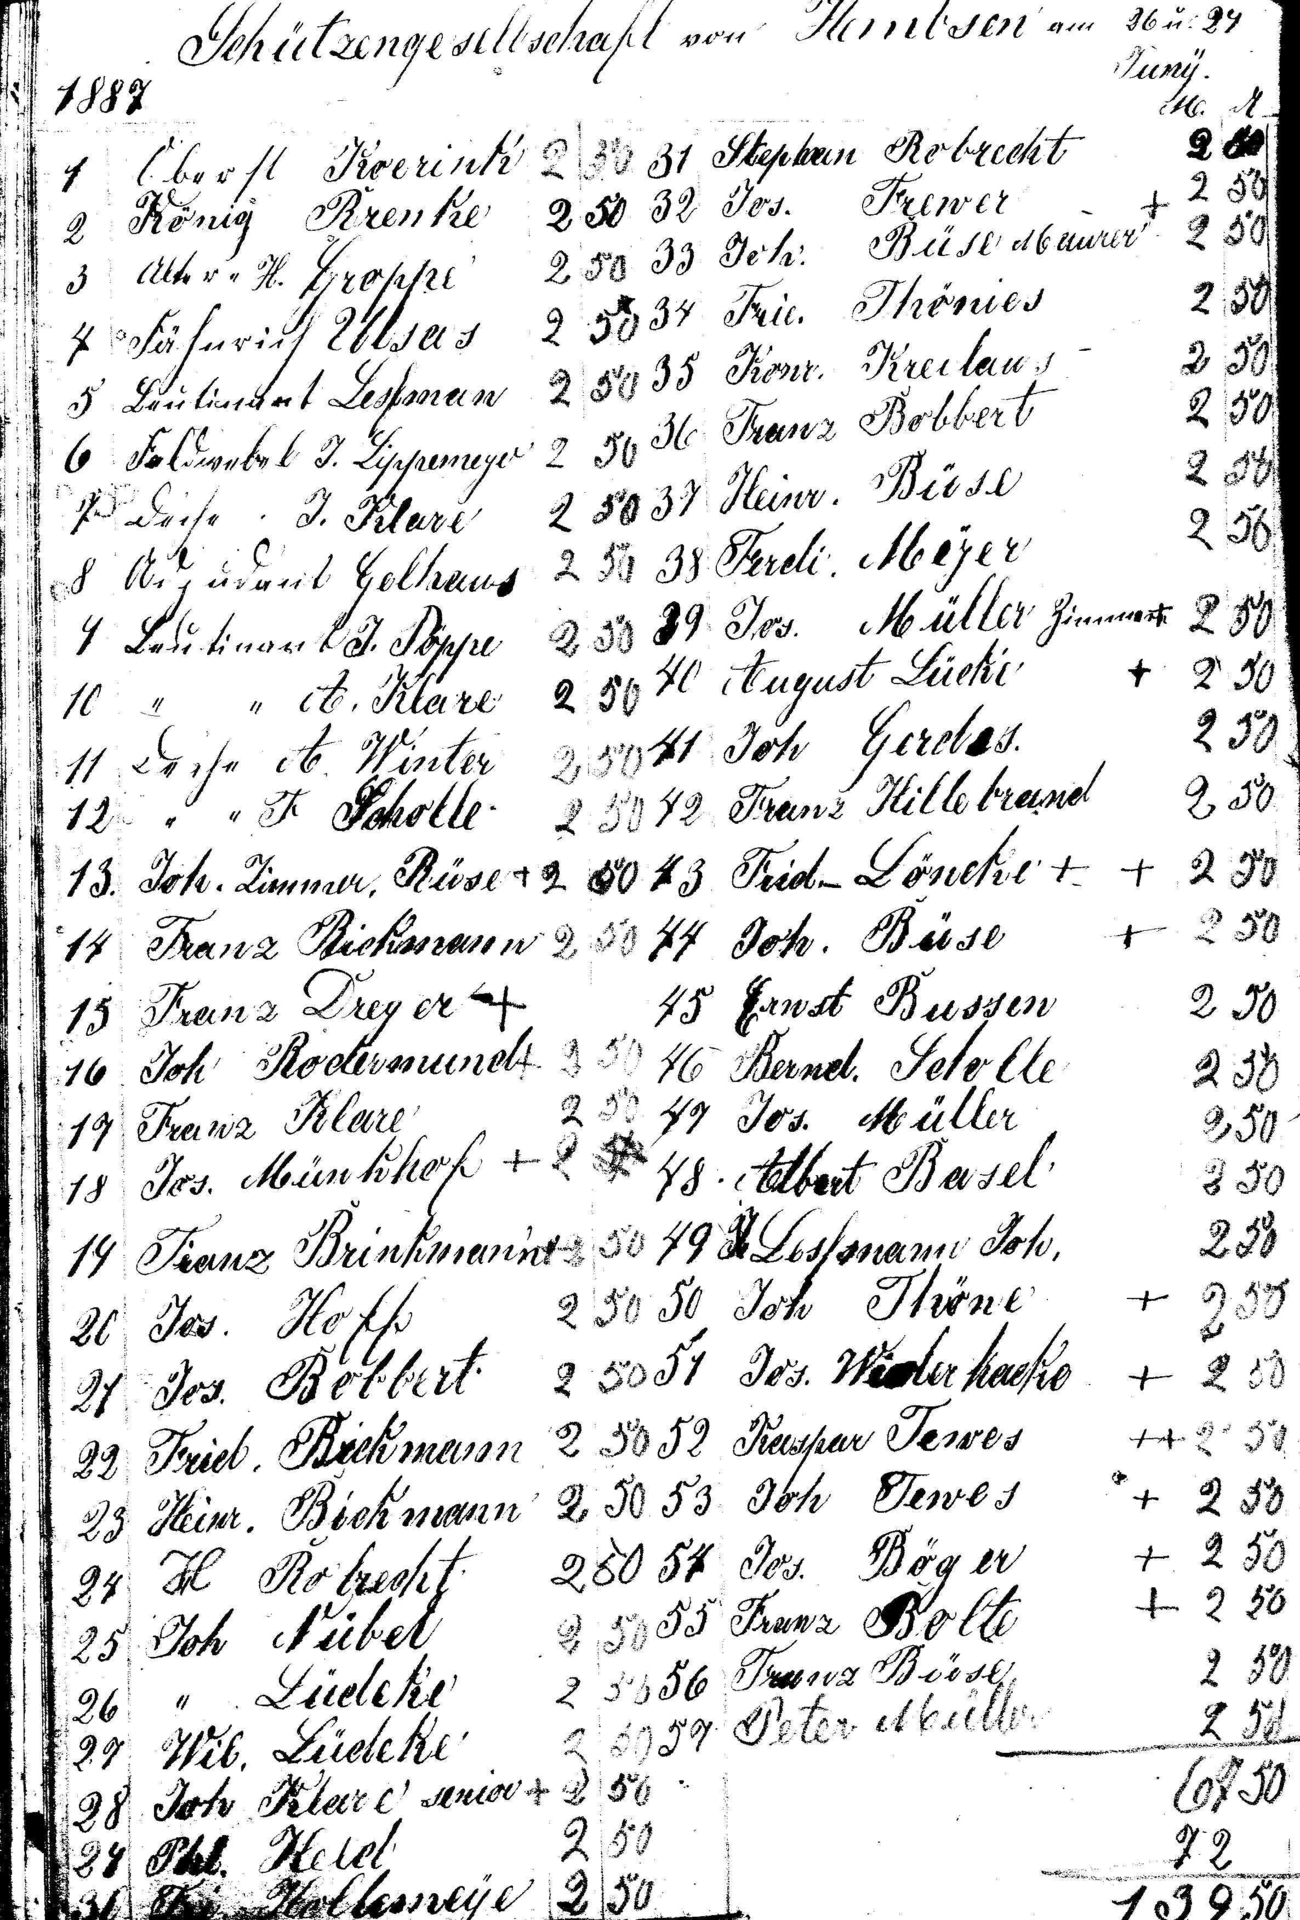 Schützengesellschaft von Hembsen am 26 u. 27
Juny.
1887
M.
1 Oberst Koerink 2 50
2 König Krenke 2 50
3 Alter " H. Groppe 2 50
4 Fähnrich 2 50
5 Leutinant Lessman 2 50
6 Feldwebel J. Lippemeyer 2 50
7 J. Klare 2 50
8 Adjudant Gelhaus 2 50
9 Leutinant J. Poppe 2 50
10 " " A. Klare 2 50
11 A. Winter 2 50
12 " " F Scholle 2 50
13. Joh. Zimmer. Büse + 2 50
14 Franz Bickmann 2 50
15 Franz Dreyer +
16 Joh Rodermund + 2 50
17 Franz Klare 2 50
18 Jos. Münkhof + 2
19 Franz Brinkmann 2 50
20 Jos. Hoff 2 50
21 Jos. Bobbert 2 50
22 Fried. Bickmann 2 50
23 Heinr. Bickmann 2 50
24 H Robrecht 2 50
25 Joh Nübel 2 50
26 " Lüdeke 2 50
27 Wil. Lüdeke 2 50
28 Joh Klare senior + 2 50
29 Phl. Held 2 50
30 Kollemeye 2 50
31 Stephan Robrecht 2 50
32 Jos. Frewer + 2 50
33 Joh. Büse Maurer 2 50
34 Frie. Thönies 2 50
35 Konr. Kreilaus 2 50
36 Franz Bobbert 2 50
37 Heinr. Büse 2 50
38 Ferdi. Meÿer 2 50
39 Jos. Müller Zimmer 2 50
40 August Lücke + 2 50
41 Joh Gerdes. 2 50
42 Franz Hillebrand 2 50
43 Frid. Löneke + + 2 50
44 Joh. Büse + 2 50
45 Ernst Bussen 2 50
46 Bernd. Scholle 2 50
47 Jos. Müller 2 50
48. Albert Basel 2 50
49 Lessmann Joh. 2 50
50 Joh Thöne + 2 50
51 Jos. Wiederhacke + 2 50
52 Kaspar Tewes ++ 2 50
53 Joh Tewes + 2 50
54 Jos. Böger + 2 50
55 Franz Bolte + 2 50
56 Franz Büse 2 50
57 Peter Müller 2 50
67 50
72
139 50